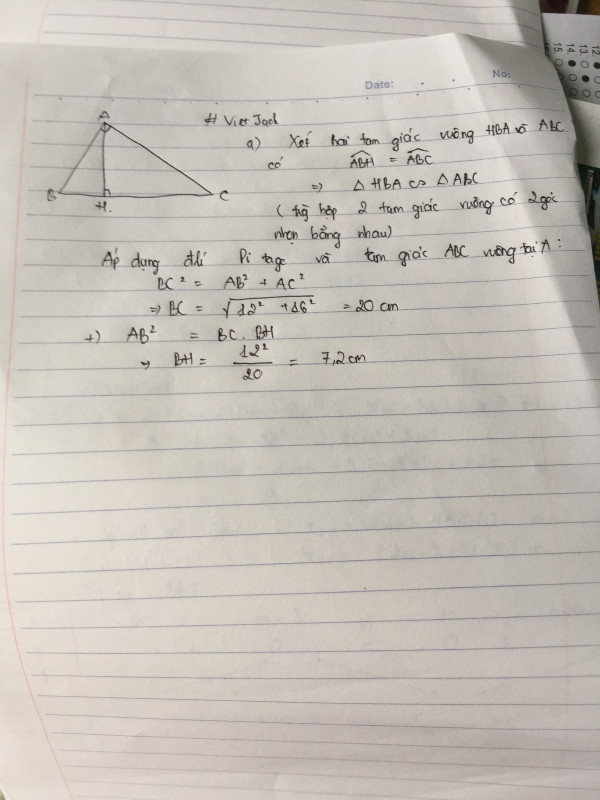 Date: . . No:
# Viet Jack
A
B
H.
C
a) Xét hai tam giác vuông HBA và ABC
có ABH = ABC
=> △ HBA ∽ △ ABC
( trg hợp 2 tam giác vuông có 2 góc
nhọn bằng nhau)
Áp dụng đlí Pi tago và tam giác ABC vuông tại A :
BC² = AB² + AC²
=> BC = √12² + 16² = 20 cm
+) AB² = BC . BH
=> BH = 12²/20 = 7,2 cm
12
13
14
15